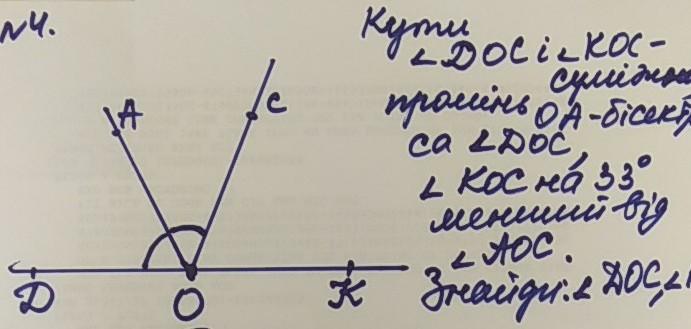 №4.
Кути
∠DOC і ∠KOC-
суміжні
промінь OA-бісект
са ∠DOC,
∠KOC на 33°
менший від
∠AOC.
Знайди: ∠DOC, ∠
A
C
D
O
K